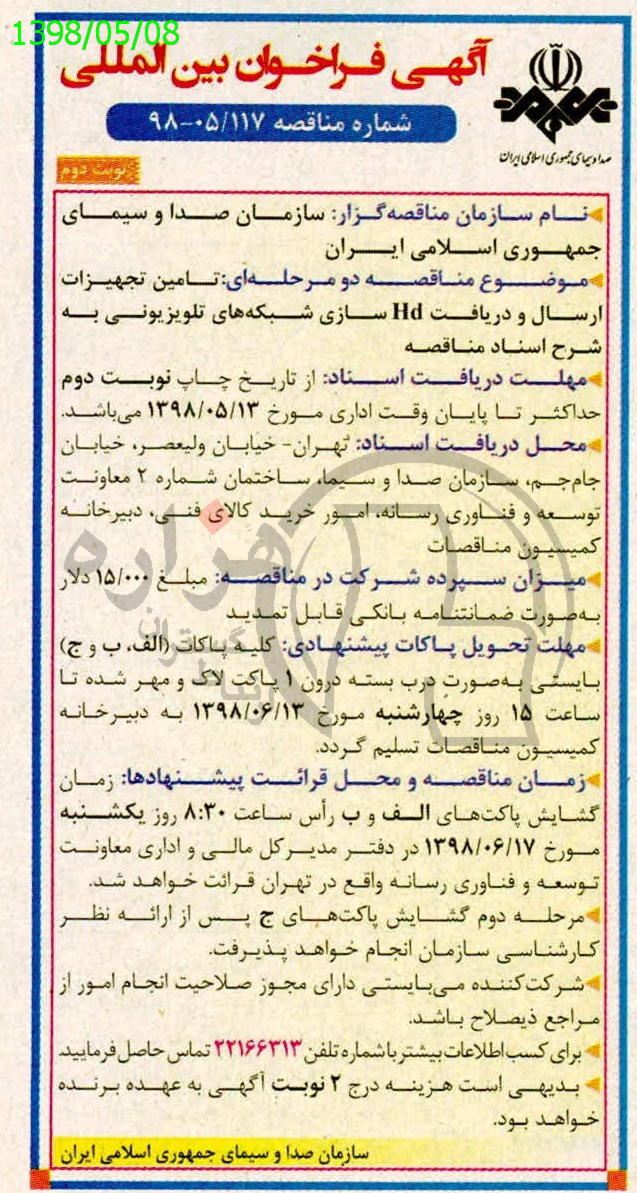 1398/05/08
آگهی فراخوان بین المللی
شماره مناقصه ۹۸-۰۵/۱۱۷
صدا و سیمای جمهوری اسلامی ایران
نوبت دوم
نام سازمان مناقصه‌گزار: سازمان صدا و سیمای
جمهوری اسلامی ایران
موضوع مناقصه دو مرحله‌ای: تامین تجهیزات
ارسال و دریافت Hd سازی شبکه‌های تلویزیونی به
شرح اسناد مناقصه
مهلت دریافت اسناد: از تاریخ چاپ نوبت دوم
حداکثر تا پایان وقت اداری مورخ ۱۳۹۸/۰۵/۱۳ می‌باشد.
محل دریافت اسناد: تهران- خیابان ولیعصر، خیابان
جام‌جم، سازمان صدا و سیما، ساختمان شماره ۲ معاونت
توسعه و فناوری رسانه، امور خرید کالای فنی، دبیرخانه
کمیسیون مناقصات
میزان سپرده شرکت در مناقصه: مبلغ ۱۵/۰۰۰ دلار
به‌صورت ضمانتنامه بانکی قابل تمدید
مهلت تحویل پاکات پیشنهادی: کلیه پاکات (الف، ب و ج)
بایستی به‌صورت درب بسته درون ۱ پاکت لاک و مهر شده تا
ساعت ۱۵ روز چهارشنبه مورخ ۱۳۹۸/۰۶/۱۳ به دبیرخانه
کمیسیون مناقصات تسلیم گردد.
زمان مناقصه و محل قرائت پیشنهادها: زمان
گشایش پاکت‌های الف و ب رأس ساعت ۸:۳۰ روز یکشنبه
مورخ ۱۳۹۸/۰۶/۱۷ در دفتر مدیرکل مالی و اداری معاونت
توسعه و فناوری رسانه واقع در تهران قرائت خواهد شد.
مرحله دوم گشایش پاکت‌های ج پس از ارائه نظر
کارشناسی سازمان انجام خواهد پذیرفت.
شرکت‌کننده می‌بایستی دارای مجوز صلاحیت انجام امور از
مراجع ذیصلاح باشد.
برای کسب اطلاعات بیشتر با شماره تلفن ۲۲۱۶۶۳۱۳ تماس حاصل فرمایید.
بدیهی است هزینه درج ۲ نوبت آگهی به عهده برنده
خواهد بود.
سازمان صدا و سیمای جمهوری اسلامی ایران
هزاره